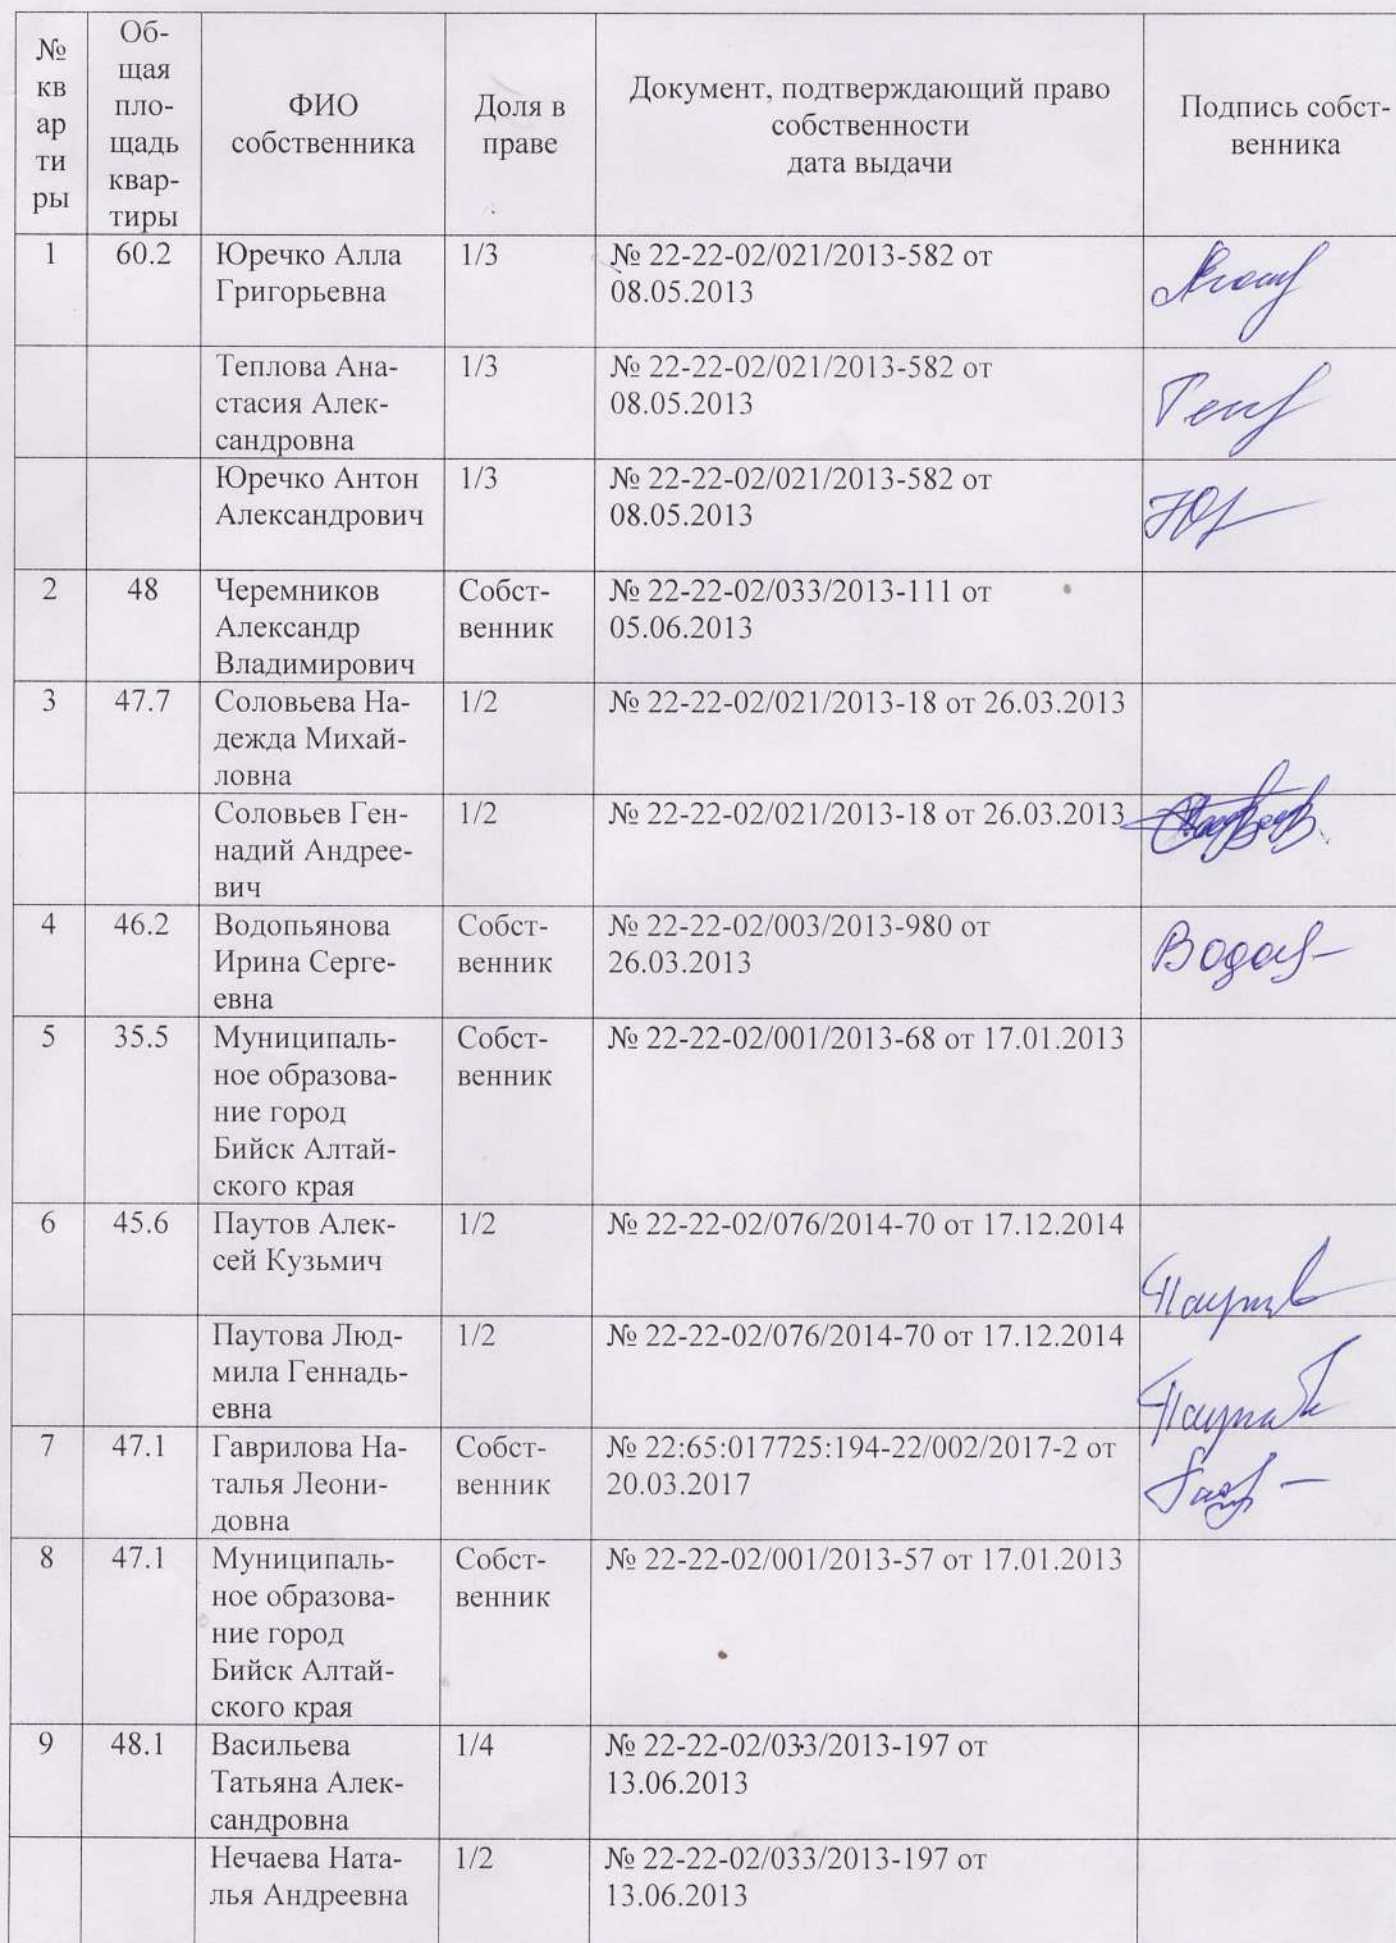 №
кв
ар
ти
ры
Об-
щая
пло-
щадь
квар-
тиры
ФИО
собственника
Доля в
праве
Документ, подтверждающий право
собственности
дата выдачи
Подпись собст-
венника
1
60.2
Юречко Алла
Григорьевна
1/3
№ 22-22-02/021/2013-582 от
08.05.2013
Теплова Ана-
стасия Алек-
сандровна
1/3
№ 22-22-02/021/2013-582 от
08.05.2013
Юречко Антон
Александрович
1/3
№ 22-22-02/021/2013-582 от
08.05.2013
2
48
Черемников
Александр
Владимирович
Собст-
венник
№ 22-22-02/033/2013-111 от
05.06.2013
3
47.7
Соловьева На-
дежда Михай-
ловна
1/2
№ 22-22-02/021/2013-18 от 26.03.2013
Соловьев Ген-
надий Андрее-
вич
1/2
№ 22-22-02/021/2013-18 от 26.03.2013
4
46.2
Водопьянова
Ирина Серге-
евна
Собст-
венник
№ 22-22-02/003/2013-980 от
26.03.2013
5
35.5
Муниципаль-
ное образова-
ние город
Бийск Алтай-
ского края
Собст-
венник
№ 22-22-02/001/2013-68 от 17.01.2013
6
45.6
Паутов Алек-
сей Кузьмич
1/2
№ 22-22-02/076/2014-70 от 17.12.2014
Паутова Люд-
мила Геннадь-
евна
1/2
№ 22-22-02/076/2014-70 от 17.12.2014
7
47.1
Гаврилова На-
талья Леони-
довна
Собст-
венник
№ 22:65:017725:194-22/002/2017-2 от
20.03.2017
8
47.1
Муниципаль-
ное образова-
ние город
Бийск Алтай-
ского края
Собст-
венник
№ 22-22-02/001/2013-57 от 17.01.2013
9
48.1
Васильева
Татьяна Алек-
сандровна
1/4
№ 22-22-02/033/2013-197 от
13.06.2013
Нечаева Ната-
лья Андреевна
1/2
№ 22-22-02/033/2013-197 от
13.06.2013